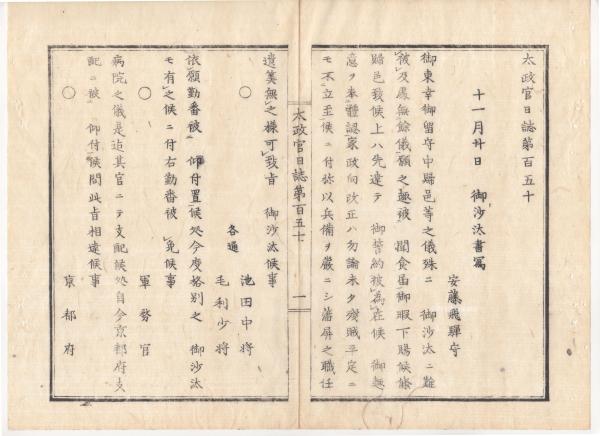 太政官日誌第百五十
十一月廿日 御沙汰書寫
安藤飛驒守
御東幸御留守中歸邑等之儀殊ニ 御沙汰ニ難
被及處無餘儀願之趣被 聞食屆御暇下賜候條
歸邑致候上ハ先達テ 御誓約被爲在候 御趣
意ヲ奉體認家政向改正ハ勿論未タ殘賊平定ニ
モ不立至候ニ付弥以兵備ヲ嚴ニシ藩屏之職任
太政官日誌第百五十 一
遺美無之様可致旨 御沙汰候事
○ 各通 池田中将
毛利少将
依願勤番被 仰付置候处今度格別之 御沙汰
モ有之候ニ付右勤番被免候事
○ 軍務官
病院之儀是迠其官ニテ支配候处自今京都府支
配ニ被 仰付候間此旨相達候事
○ 京都府